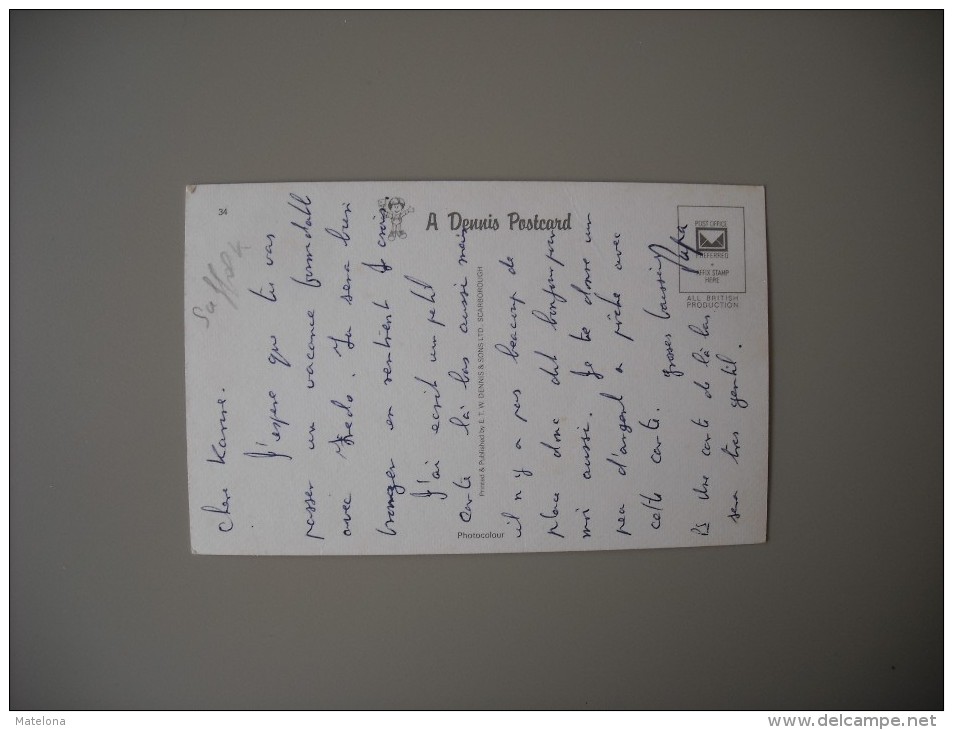 34
Suffolk
A Dennis Postcard
POST OFFICE
PREFERRED
AFFIX STAMP
HERE
ALL BRITISH
PRODUCTION
Printed & Published by E. T. W. DENNIS & SONS LTD., SCARBOROUGH
Photocolour
Chere Karine.
J'espere que tu vas
passer un vacance formidabl
avec Fredo. Tu sera bien
bronzer en rentrent je crois.
J'ai ecrit um petit
carte là bas aussi mais
il n'y a pas beaucoup de
place donc dit bonjour pour
moi aussi. Je te donne un
peu d'argent a pêche avec
cette carte.
grosses baissing Papa
PS Une carte de là bas
sera tres gentil.
Matelona
www.delcampe.net